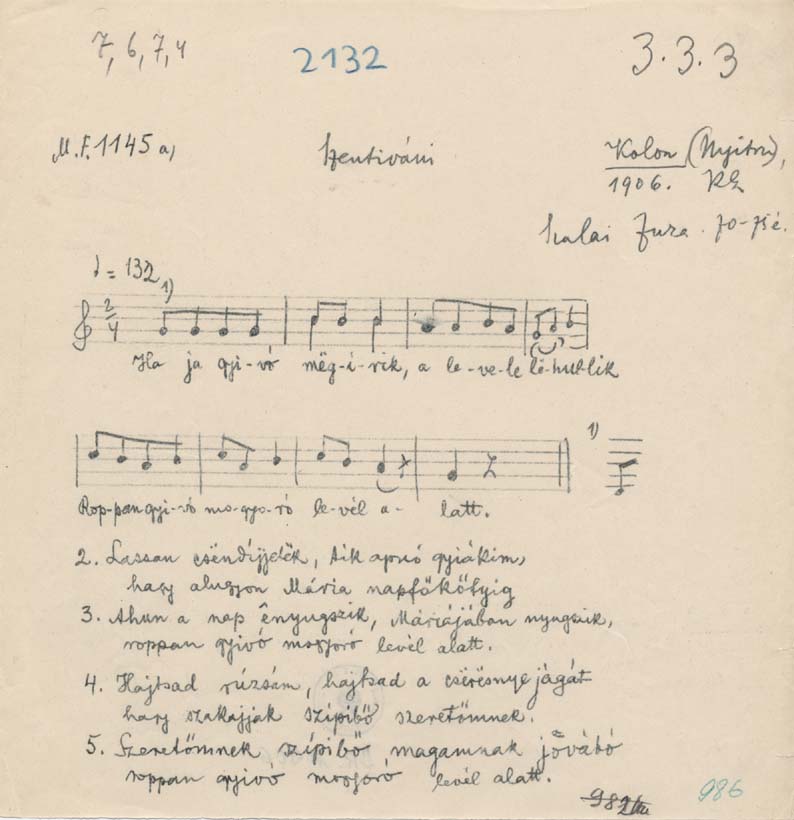 7, 6, 7, 4
2132
3.3.3
M.F. 1145 a,
Szentiváni
Kolon (Nyitra),
1906.
Szalai Zuza. 70-75 é.
= 132
1)
2
4
Ha ja gyi-vó mëg-í-rik, a le-ve-le lë-hul-lik
1)
Rop-pan gyi-vó mo-gyo-ró le-vél a- latt.
2. Lassan csëndíjjetëk, tik apruó gyiákim,
hagy alugyon Mária napfőkőtyig
3. Ahun a nap ênyugszik, Máriájában nyugszik,
roppan gyivó mogyoró levél alatt.
4. Hajtsad rúzsám, hajtsad a csërësnye jágát
hagy szakajjak szípibő szeretőmnek.
5. Szeretőmnek szípibő magamnak jovábó
roppan gyivó mogyoró levél alatt.
986